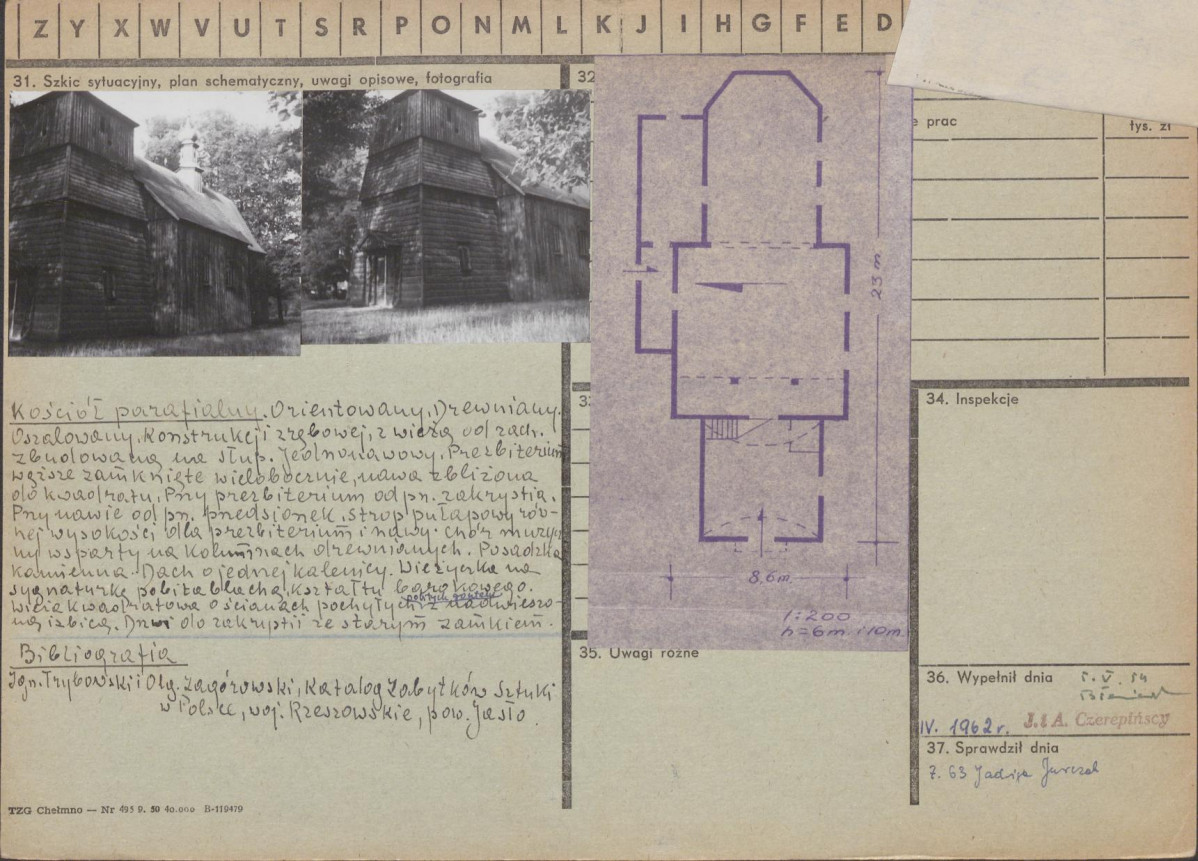 Z Y X W V U T S R P O N M L K J I H G F E D
31. Szkic sytuacyjny, plan schematyczny, uwagi opisowe, fotografia
32
Kościół parafialny. Orientowany. Drewniany.
Oszalowany. Konstrukcji zrębowej, z wieżą od zach.
zbudowaną na słup. Jednonawowy. Prezbiterium
węższe zamknięte wielobocznie, nawa zbliżona
do kwadratu. Przy prezbiterium od pn. zakrystia.
Przy nawie od pn. przedsionek. Strop pułapowy rów-
nej wysokości dla prezbiterium i nawy. Chór muzycz
ny wsparty na kolumnach drewnianych. Posadzka
kamienna. Dach o jednej kalenicy. Wieżyczka na
sygnaturkę pobita blachą, kształtu barokowego.
Wieża kwadratowa o ścianach pochyłych z nadwieszo-
ną izbicą. Drzwi do zakrystii ze starym zamkiem.
Bibliografia
Ign. Trybowski i Olg. Zagórowski, Katalog Zabytków Sztuki
w Polsce, woj. Rzeszowskie, pow. Jasło.
TZG Chełmno — Nr 495 9. 59 40.000 B-119479
23 m
8,6m
1:200
h=6m i 10m.
e prac
tys. zł
33
34. Inspekcje
35. Uwagi różne
36. Wypełnił dnia
5. V. 59
IV. 1962 r. J. i A. Czerepińscy
37. Sprawdził dnia
7. 63 Jadwiga